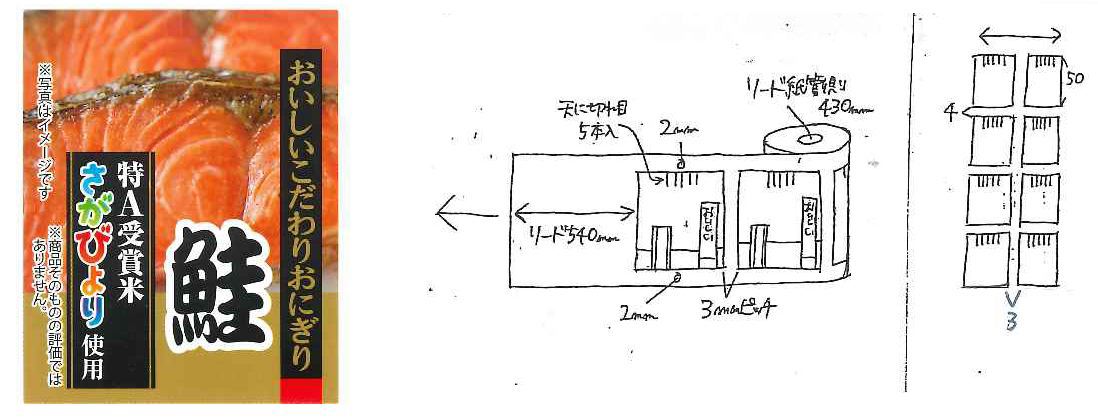 おいしいこだわりおにぎり
特A受賞米
さがびより使用
鮭
※写真はイメージです
※商品そのものの評価では
ありません。
天に切れ目
5本入
2mm
430mm
リード540mm
2mm
3mmピッチ
50
4
3